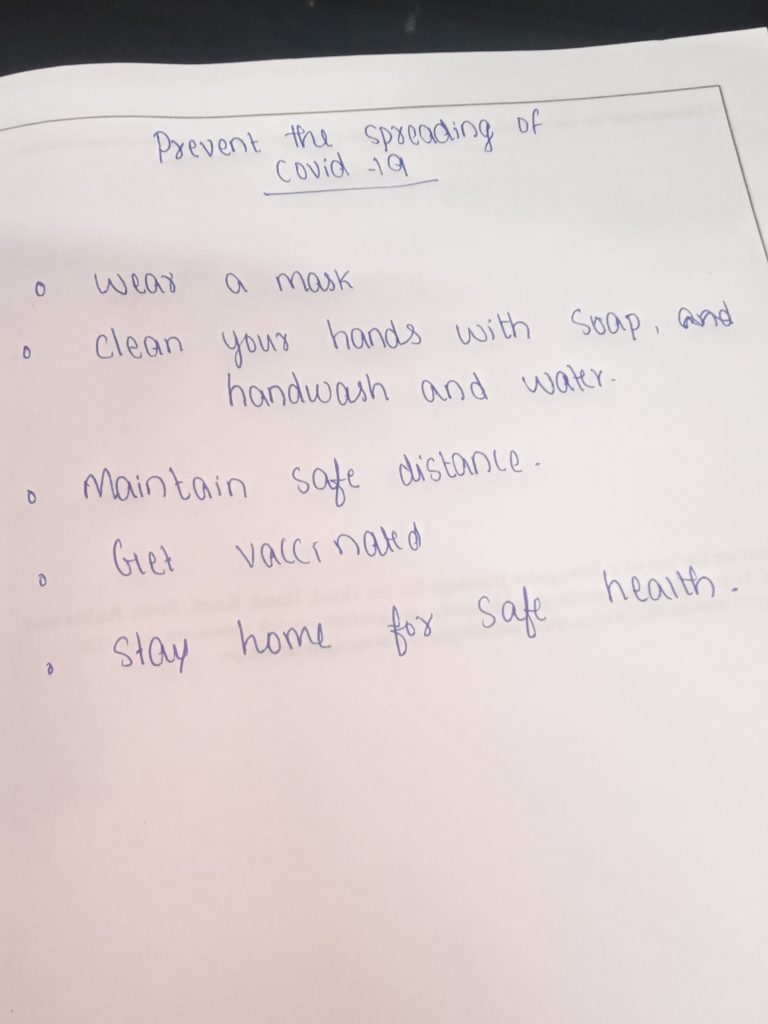 Prevent the spreading of
Covid -19
wear a mask
clean your hands with soap, and
handwash and water.
Maintain safe distance.
Get vaccinated
stay home for safe health.